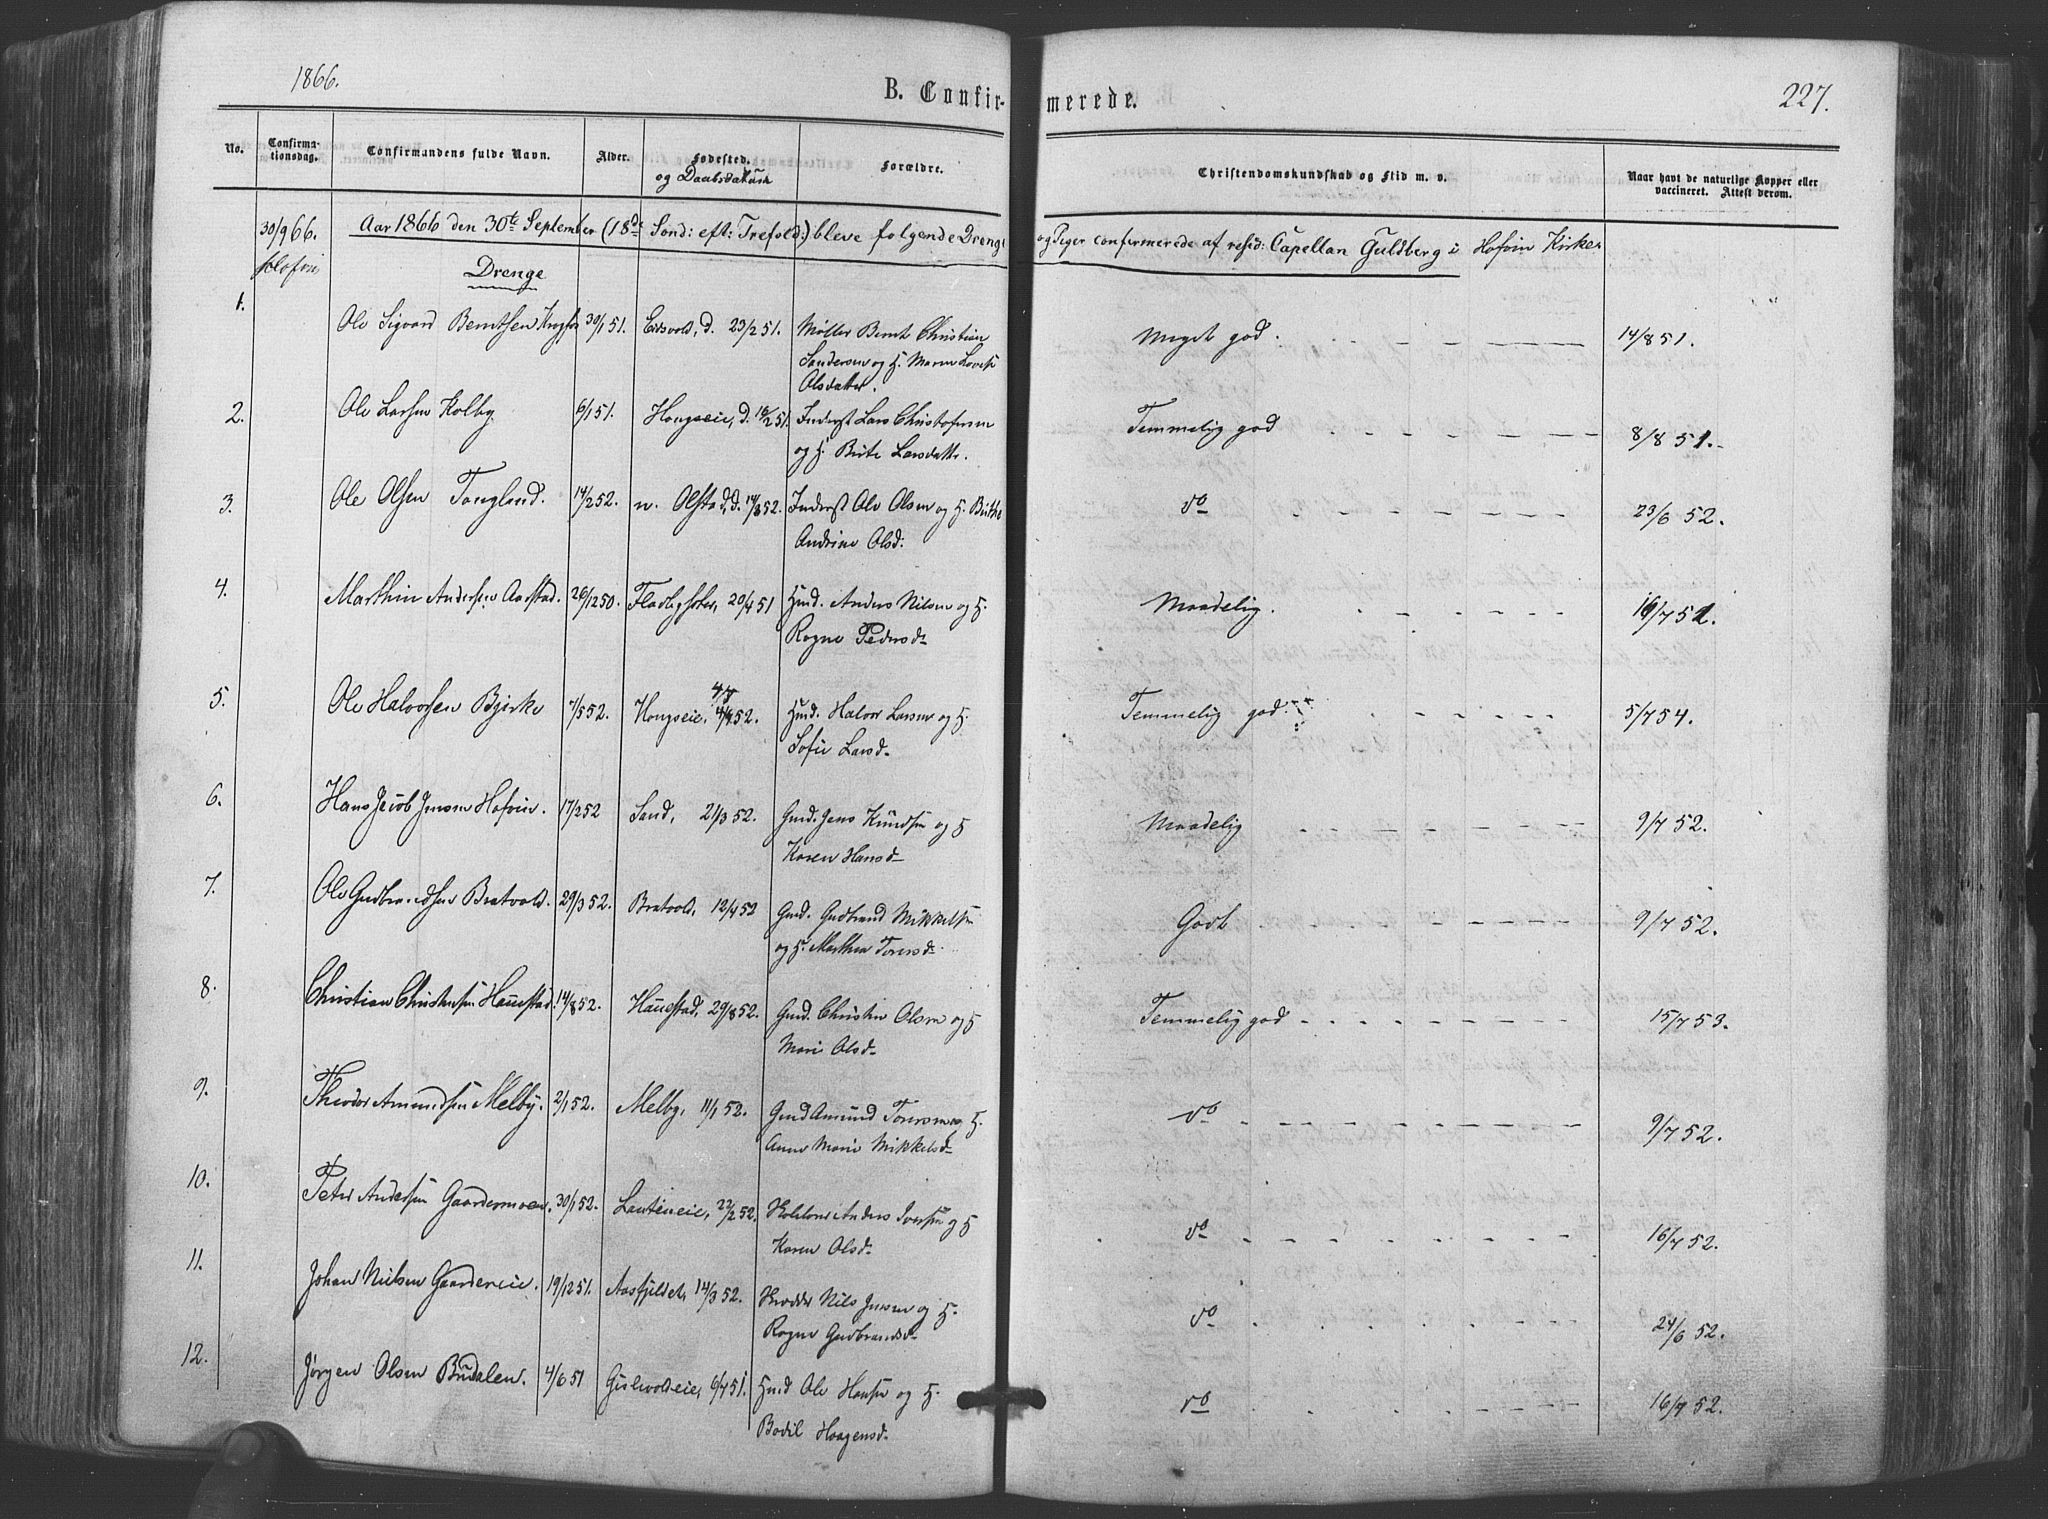 1866.
B. Confirmerede.
227.
No.
Confirmationsdag.
Confirmandens fulde Navn.
Alder.
Fødested. og Daabsdatum
Forældre.
Christendomskundskab og Flid m. v.
Naar havt de naturlige Kopper eller vaccineret. Attest derom.
30/9 66. Aar 1866 den 30te September (18de Sønd: eft: Trefold:) bleve følgende Drenge og Piger confirmerede af resid: Capellan Guldberg i Hofvin Kirke
Hofvin
Drenge
1. Ole Sigvard Berntsen 30/1 51. Eidsvold, d. 23/2 51. Møller Bernt Christian Meget god. 14/8 51.
Sandersen og H. Maren Lovise
Olsdatter.
2. Ole Larsen Kolby 6/1 51. Hongseie, d. 16/2 51. Inderst Lars Christofersen Temmelig god 8/8 51.
og H. Birte Larsdatter.
3. Ole Olsen Tongland. 14/2 52. n. Olstad, d. 14/3 52. Inderst Ole Olsen og H. Birthe do 23/6 52.
Andrine Olsd:
4. Marthin Andersen Aarstad. 26/12 50. 20/4 51 Husd. Anders Nilsen og H. Maadelig. 16/7 51.
Ragne Pedersd
5. Ole Halvorsen Bjerke 7/5 52. Hongseie, 4/7 52. Husd. Halvor Larsen og H. Temmelig god. 5/7 54.
Sofie Larsd.
6. Hans Jacob Jensen Hofvin. 17/2 52 Sand, 21/3 52. Gmd. Jens Knudsen og H Maadelig 9/7 52.
Karen Hansd
7. Ole Gudbrandsen Bratvold. 29/3 52. Bratvold, 12/4 52 Gmd. Gudbrand Mikkelsen Godt 9/7 52.
og H. Marthea Toresd.
8. Christian Christiansen Haustad. 14/8 52. Haustad, 29/8 52. Gmd. Christian Olsen og H Temmelig god 15/7 53.
Marie Olsd.
9. Theodor Amundsen Melby. 2/1 52. Melby, 11/1 52. Gmd Amund Toresen og H. do 9/7 52.
Anne Marie Mikkelsd
10. Peter Andersen Gaardermoen. 30/1 52. Lauteneie, 22/2 52. Anders Iversen og H do 16/7 52.
Karen Olsd.
11. Johan Nielsen Gaardereie. 19/12 51. Aasfjeldet, 14/3 52. Skredder Nils Jensen og H. do 24/6 52.
Ragne Gudbrandsd.
12. Jørgen Olsen Brudalen. 4/6 51 Gislevoldeie, 6/7 51. Husd Ole Hansen og H. do 16/7 52.
Bodil Haagensd.